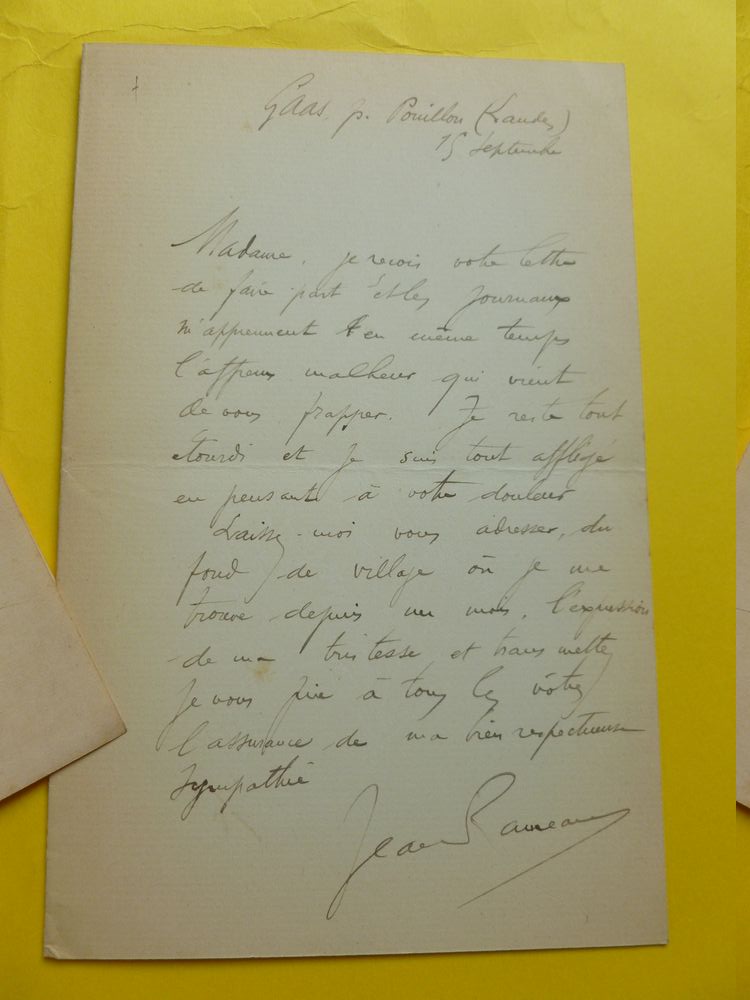 Gaas, p. Pouillon (Landes)
15 Septembre
Madame, je reçois votre lettre
de faire part et les journaux
m'apprennent en même temps
l'affreux malheur qui vient
de vous frapper. Je reste tout
étourdi et je suis tout affligé
en pensant à votre douleur
Laissez-moi vous adresser, du
fond de village où je me
trouve depuis un mois, l'expression
de ma tristesse et transmettez
je vous prie à tous les vôtres
l'assurance de ma bien respectueuse
sympathie
Jean Rameau